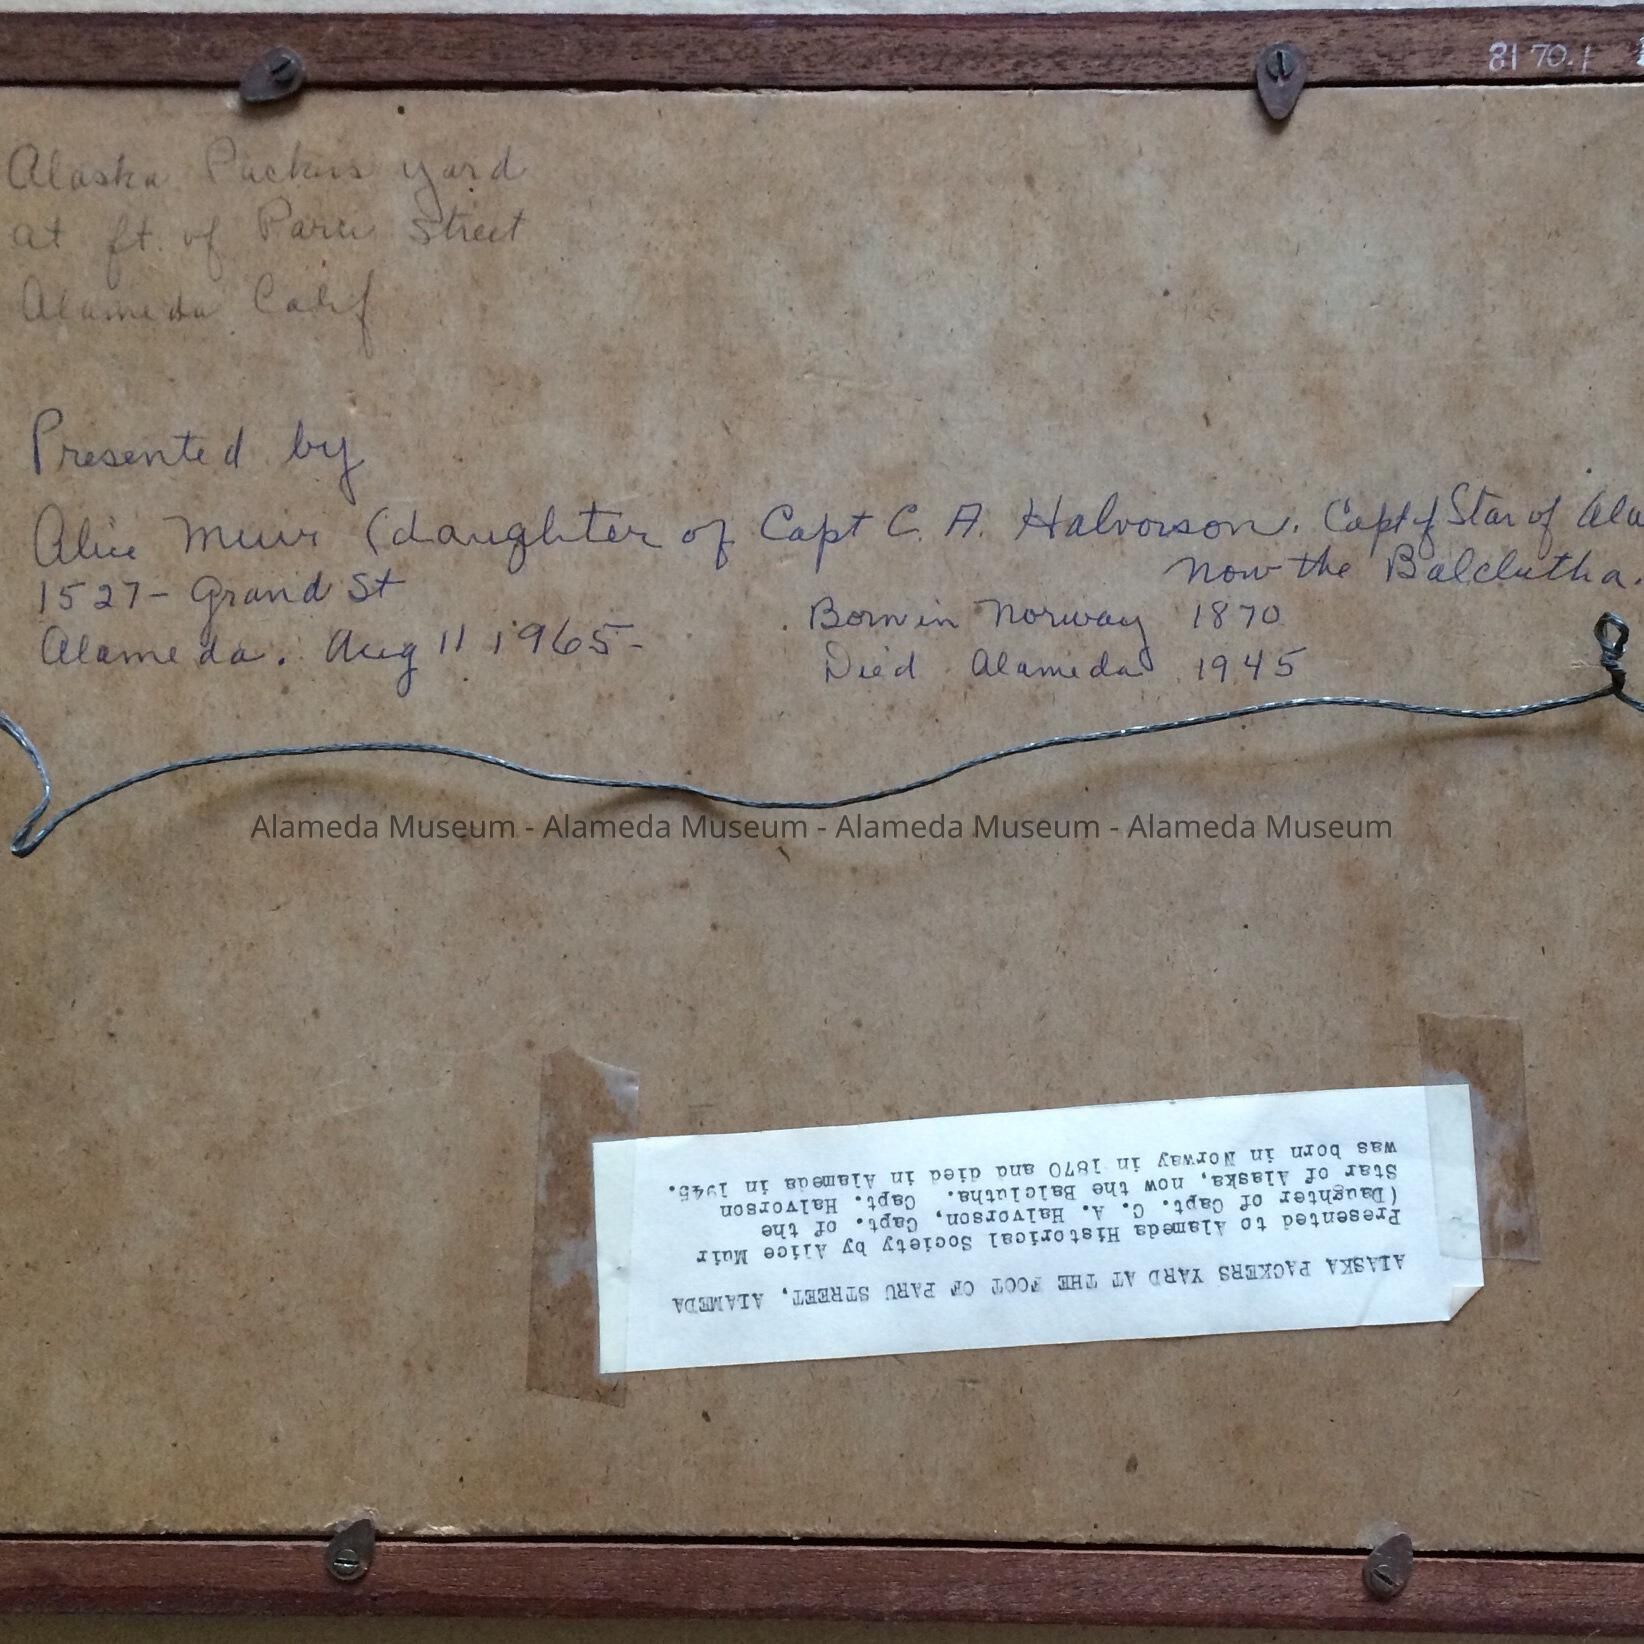 81 70.1
Alaska Packers yard
at ft. of Paru Street
Alameda Calif
Presented by
Alice Muir (daughter of Capt C. A. Halvorson. Capt of Star of Ala
now the Balclutha.
1527- Grand St
Born in Norway 1870
Alameda. Aug 11 1965-
Died Alameda 1945
Alameda Museum - Alameda Museum - Alameda Museum - Alameda Museum
ALASKA PACKERS YARD AT THE FOOT OF PARU STREET, ALAMEDA
Presented to Alameda Historical Society by Alice Muir
(Daughter of Capt. C. A. Halvorson, Capt. of the
Star of Alaska, now the Balclutha. Capt. Halvorson
was born in Norway in 1870 and died in Alameda in 1945.